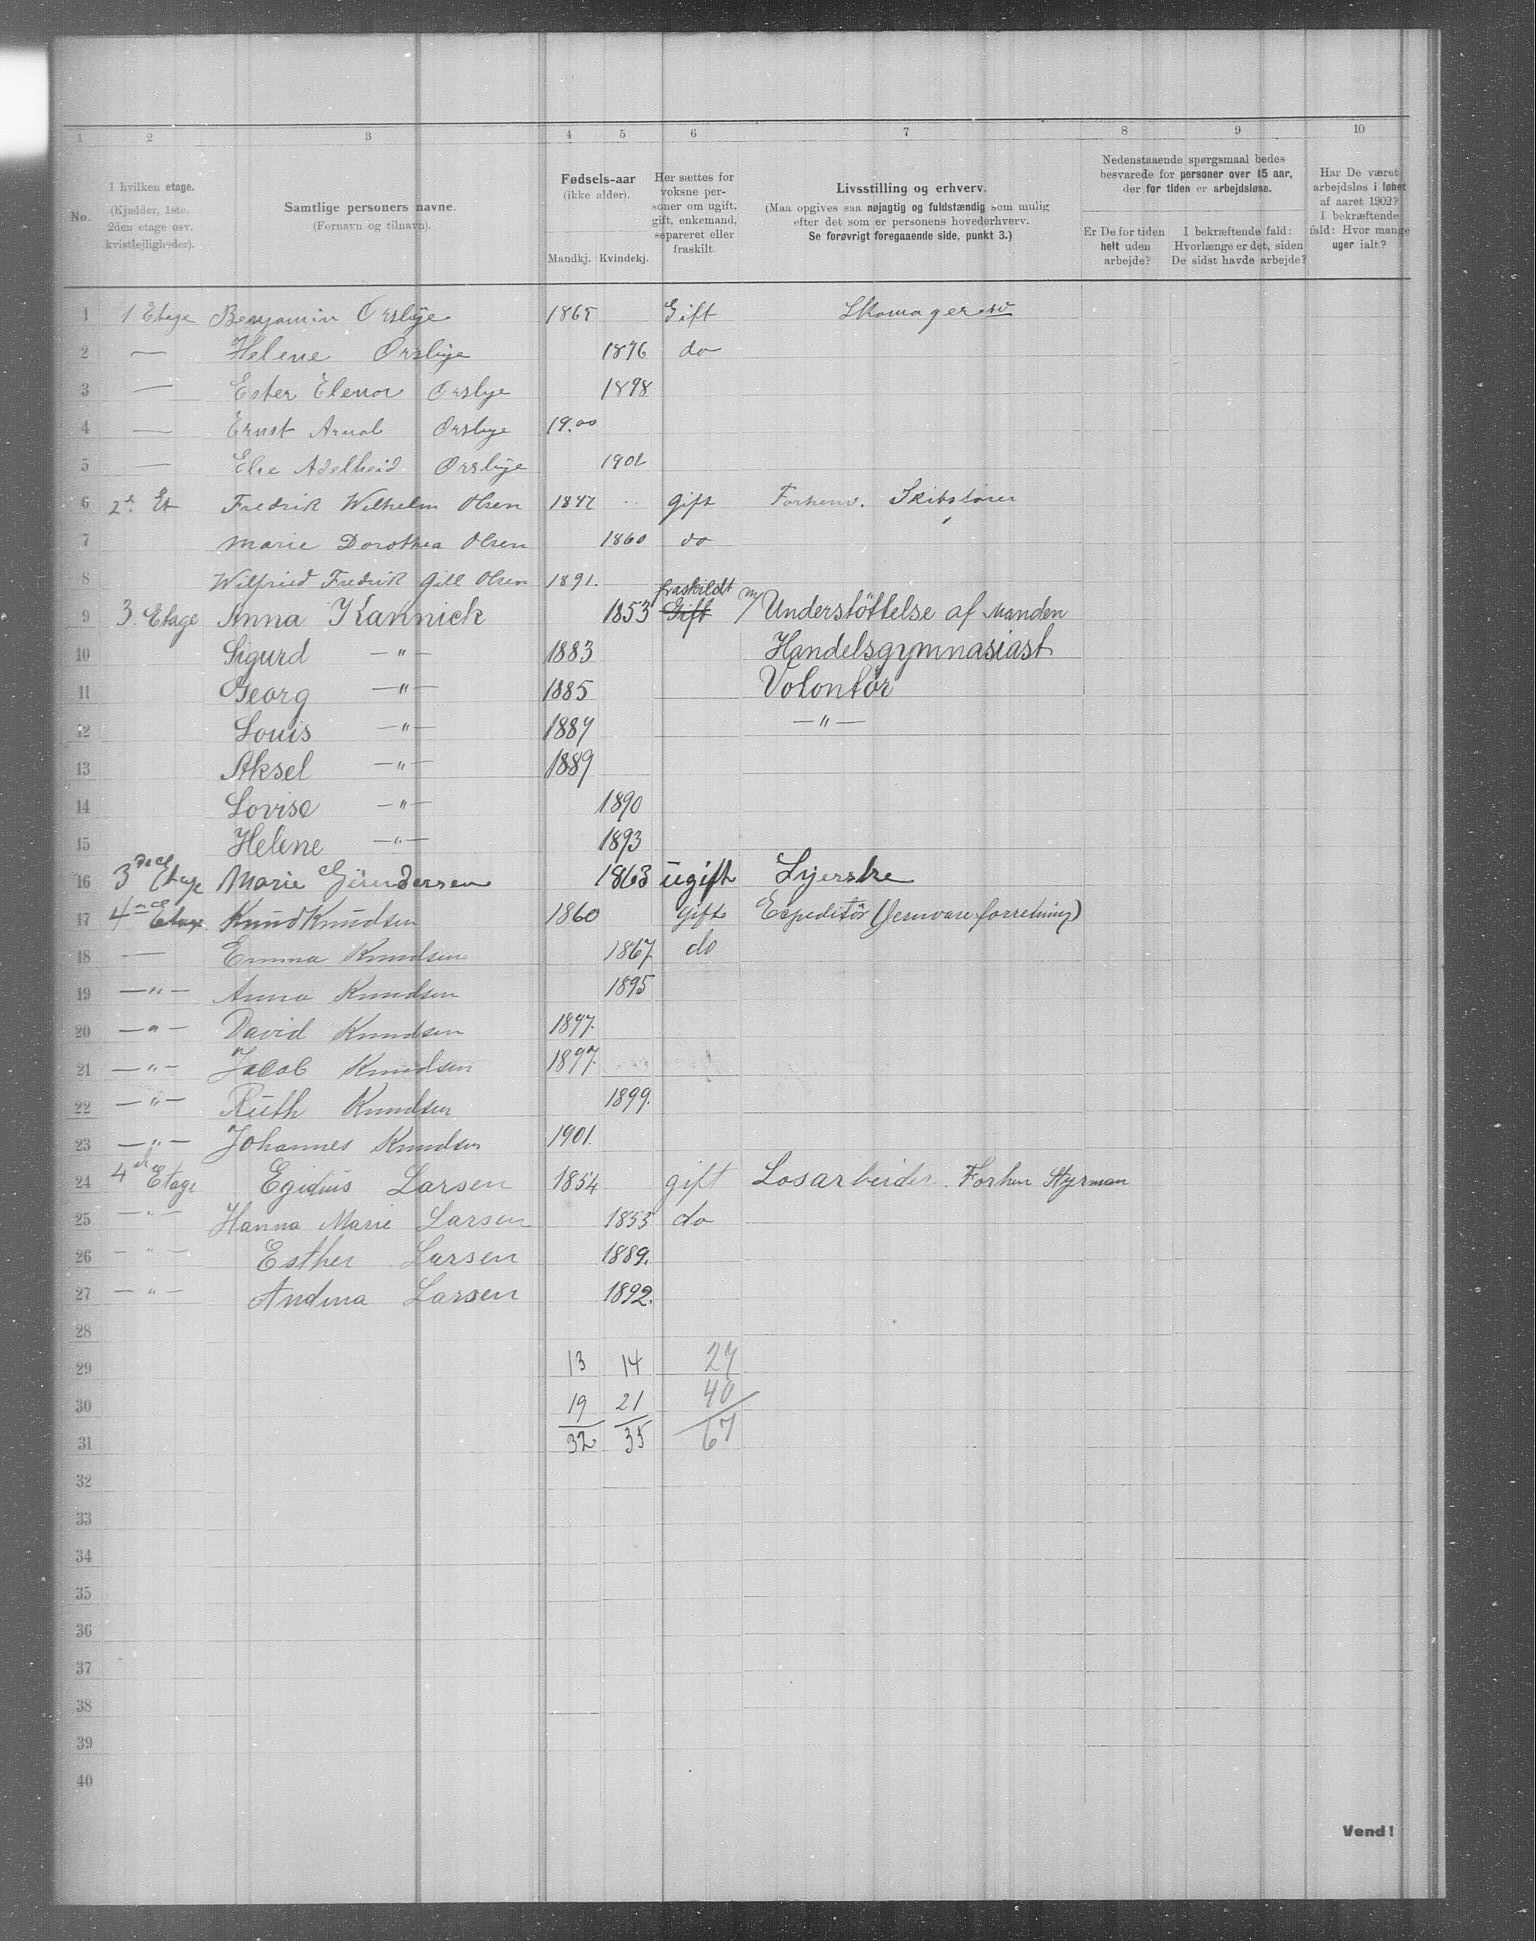 1 2 3 4 5 6 7 8 9 10
No.
I hvilken etage.
(Kjælder, 1ste,
2den etage osv.
kvistlejligheder).
Samtlige personers navne.
(Fornavn og tilnavn).
Fødsels-aar
(ikke alder).
Mandkj. Kvindekj.
Her sættes for
voksne per-
soner om ugift,
gift, enkemand,
separeret eller
fraskilt.
Livsstilling og erhverv.
(Maa opgives saa nøjagtig og fuldstændig som mulig
efter det som er personens hovederhverv.
Se forøvrigt foregaaende side, punkt 3.)
Nedenstaaende spørgsmaal bedes
besvarede for personer over 15 aar,
der for tiden er arbejdsløse.
Er De for tiden
helt uden
arbejde?
I bekræftende fald:
Hvorlænge er det, siden
De sidst havde arbejde?
Har De været
arbejdsløs i løbet
af aaret 1902?
I bekræftende
fald: Hvor mange
uger ialt?
1 1 Etage Benjamin Orslye 1865 Gift Skomagersv
2 — Helene Orslye 1876 do
3 — Ester Elenor Orslye 1898
4 — Ernst Arnol Orslye 19.00
5 — Else Adelheid Orslye 1902
6 2. Et Fredrik Wilhelm Olsen 1847 gift Forhenv. Skibsfører
7 Marie Dorothea Olsen 1860 do
8 Wilfried Fredrik Gill Olsen 1891.
9 3 Etage Anna Kannick 1853 fraskildt Gift m/ Understöttelse af Manden
10 Sigurd —"— 1883 Handelsgymnasiast
11 Georg —"— 1885 Volontör
12 Louis —"— 1887 —"—
13 Aksel —"— 1889
14 Lovise —"— 1890
15 Helene —"— 1893
16 3 Etage Marie Gundersen 1863 ugift Syerske
17 4 Etage Knud Knudsen 1860 gift Expeditör (Jernvareforretning)
18 — Emma Knudsen 1867. do
19 —"— Anna Knudsen 1895
20 —"— David Knudsen 1897.
21 —"— Jacob Knudsen 1897.
22 —"— Ruth Knudsen 1899.
23 —"— Johannes Knudsen 1901.
24 4 Etage Egidius Larsen 1854 gift Losarbeider. Forhen Styrman
25 —"— Hanna Marie Larsen 1853 do
26 —"— Esther Larsen 1889.
27 —"— Andina Larsen 1892.
28
29 13 14 27
30 19 21 40
31 32 35 67
32
33
34
35
36
37
38
39
40
Vend!